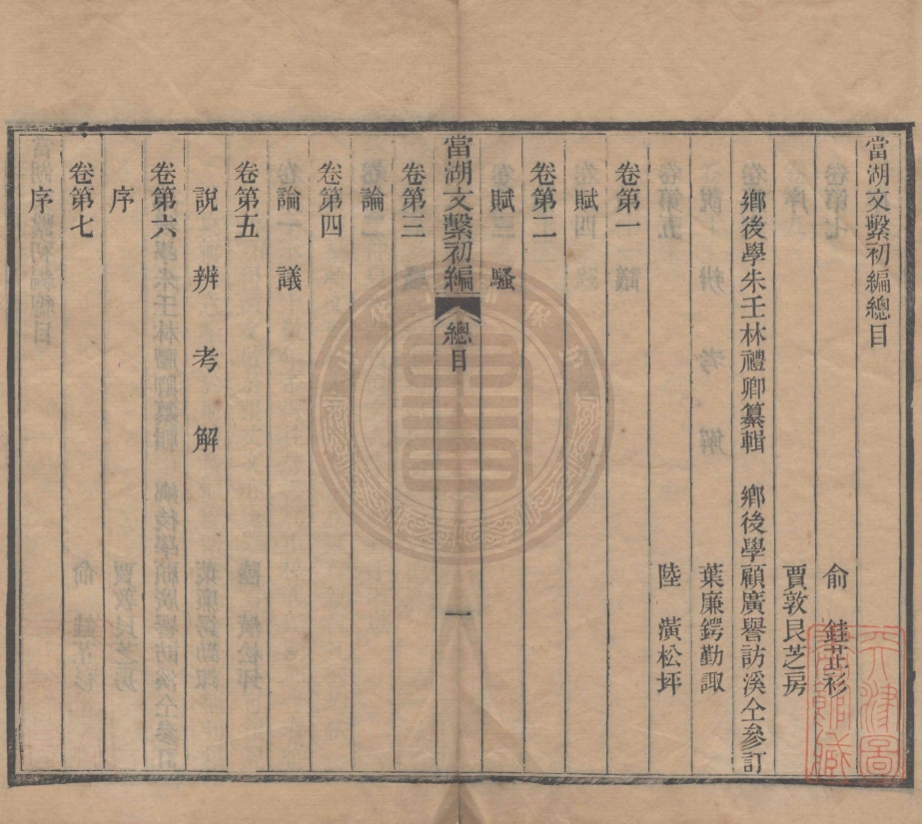 當湖文繫初編總目
俞　銈芷衫
賈敦艮芝房
鄉後學朱壬林禮卿纂輯　鄉後學顧廣譽訪溪仝參訂
葉廉鍔勤諏
陸　潢松坪
卷第一
賦
卷第二
賦　騷
當湖文繫初編　總目　一
卷第三
論
卷第四
論　議
卷第五
說　辨　考　解
卷第六
序
卷第七
序
天津圖
書館藏